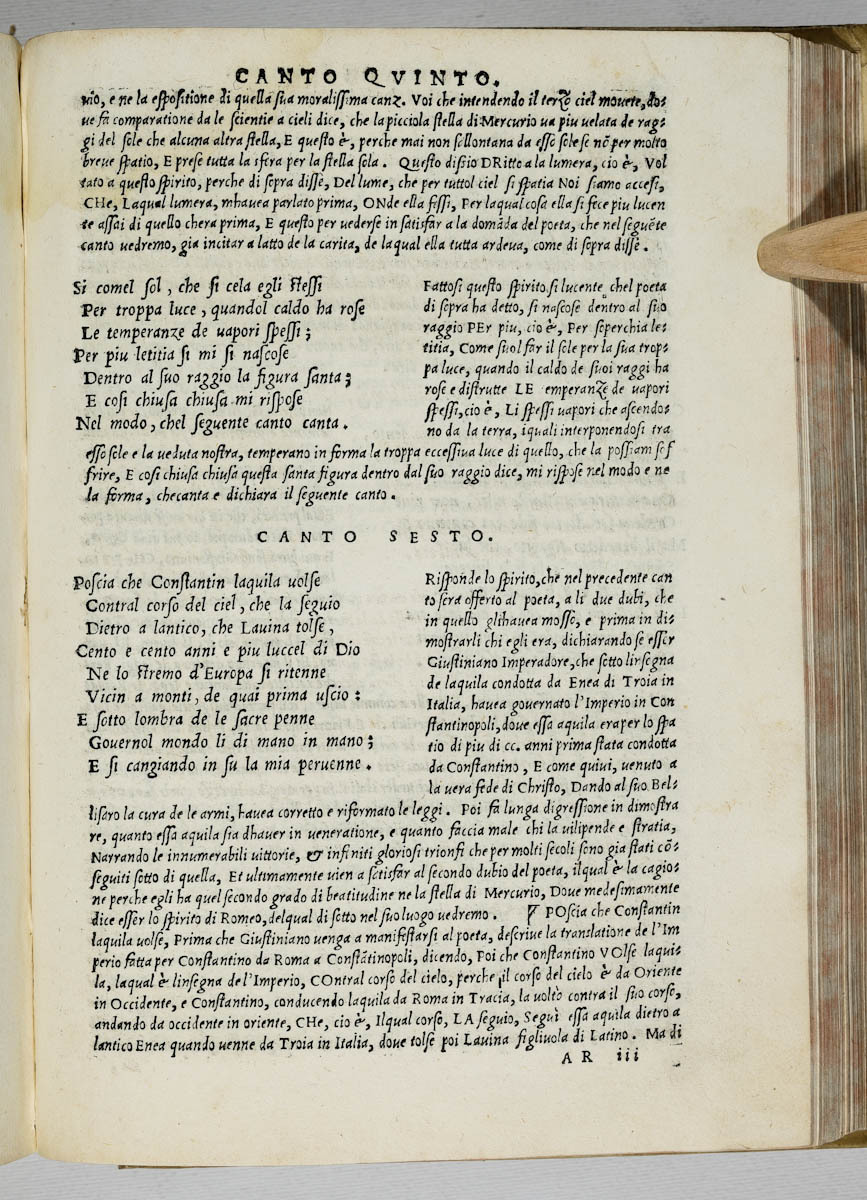 CANTO QVINTO.
uio, e ne la espositione di quella sua moralissima canz. Voi che intendendo il terzo ciel mouete, do=
ue fa comparatione da le scientie a cieli dice, che la picciola stella di Mercurio ua piu uelata de rag=
gi del sole che alcuna altra stella, E questo è, perche mai non sellontana da esso sole se nõ per molto
breue spatio, E prese tutta la sfera per la stella sola. Questo dissio DRitto a la lumera, cio è, Vol
tato a questo spirito, perche di sopra disse, Del lume, che per tuttol ciel si spatia Noi siamo accesi,
CHe, Laqual lumera, mhauea parlato prima, ONde ella fessi, Per laqual cosa ella si fece piu lucen
te assai di quello chera prima, E questo per uederse in satisfar a la domãda del poeta, che nel seguẽte
canto uedremo, gia incitar a latto de la carita, de laqual ella tutta ardeua, come di sopra disse.
Si comel sol, che si cela egli stessi
Per troppa luce, quandol caldo ha rose
Le temperanze de uapori spessi;
Per piu letitia si mi si nascose
Dentro al suo raggio la figura santa;
E cosi chiusa chiusa mi rispose
Nel modo, chel seguente canto canta.
Fattosi questo spirito si lucente, chel poeta
di sopra ha detto, si nascose dentro al suo
raggio PEr piu, cio è, Per soperchia le=
titia, Come suol far il sole per la sua trop=
pa luce, quando il caldo de suoi raggi ha
rose e distrutte LE emperanze de uapori
spessi, cio è, Li spessi uapori che ascendo=
no da la terra, iquali interponendosi tra
esso sole e la ueduta nostra, temperano in forma la troppa eccessiua luce di quello, che la possiam sof
frire, E cosi chiusa chiusa questa santa figura dentro dal suo raggio dice, mi rispose nel modo e ne
la forma, checanta e dichiara il seguente canto.
CANTO SESTO.
Poscia che Constantin laquila uolse
Contral corso del ciel, che la seguio
Dietro a lantico, che Lauina tolse,
Cento e cento anni e piu luccel di Dio
Ne lo stremo d'Europa si ritenne
Vicin a monti, de quai prima uscio:
E sotto lombra de le sacre penne
Gouernol mondo li di mano in mano;
E si cangiando in su la mia peruenne.
Risponde lo spirito, che nel precedente can
to sera offerto al poeta, a li due dubi, che
in quello glihauea mosso, e prima in di=
mostrarli chi egli era, dichiarando se esser
Giustiniano Imperadore, che sotto linsegna
de laquila condotta da Enea di Troia in
Italia, hauea gouernato l'Imperio in Con
stantinopoli, doue essa aquila era per lo spa
tio di piu di cc. anni prima stata condotta
da Constantino, E come quiui, uenuto a
la uera fede di Christo, Dando al suo Bel=
lisaro la cura de le armi, hauea corretto e riformato le leggi. Poi fa lunga digressione in dimostra
re, quanto essa aquila sia dhauer in ueneratione, e quanto faccia male chi la uilipende e stratia,
Narrando le innumerabili uittorie, & infiniti gloriosi trionfi che per molti secoli sono gia stati cõ=
seguiti sotto di quella, Et ultimamente uien a sotisfar al secondo dubio del poeta, ilqual è la cagio=
ne perche egli ha quel secondo grado di beatitudine ne la stella di Mercurio, Doue medesimamente
dice esser lo spirito di Romeo, delqual di sotto nel suo luogo uedremo. POscia che Constantin
laquila uolse, Prima che Giustiniano uenga a manifestarsi al poeta, descriue la translatione de l'Im
perio fatta per Constantino da Roma a Constãtinopoli, dicendo, Poi che Constantino VOlse laqui=
la, laqual è linsegna de l'Imperio, COntral corso del cielo, perche il corso del cielo è da Oriente
in Occidente, e Constantino, conducendo laquila da Roma in Tracia, la uolto contra il suo corso,
andando da occidente in oriente, CHe, cio è, Ilqual corso, LA seguio, Seguì essa aquila dietro a
lantico Enea quando uenne da Troia in Italia, doue tolse poi Lauina figliuola di Latino. Ma di
AR iii